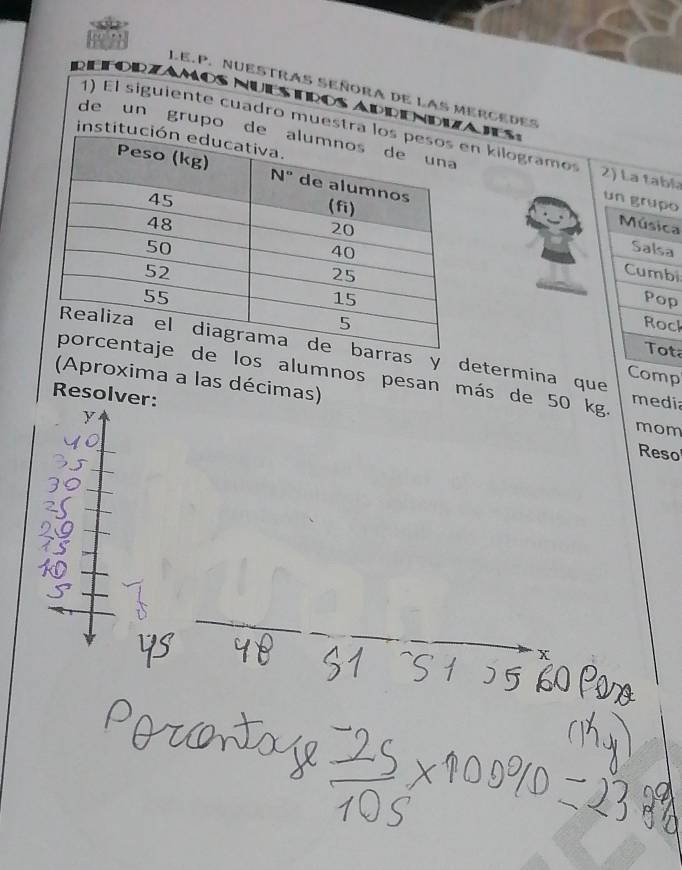 I.E.P. NUESTRAS SEÑORA DE LAS MERCEDES
REFORZAMOS NUESTROS APRENDIZAJES:
1) El siguiente cuadro muestra los pesos en kilogramos
de un grupo de alumnos de una
institución educativa.
Peso (kg) N° de alumnos (fi)
45 20
48 40
50 25
52 15
55 5
Realiza el diagrama de barras y determina que
porcentaje de los alumnos pesan más de 50 kg.
(Aproxima a las décimas)
Resolver:
y
40
35
30
25
20
15
10
5
x
45 48 51 51 55 60 Peso
(kg)
Porcentaje 25/105 x 100% = 23 8%
2) La tabla
un grupo
Música
Salsa
Cumbi
Pop
Rock
Tota
Comp
media
mom
Reso